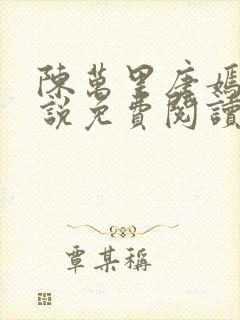 陳萬里唐嫣
說免費閱讀
覃某稱